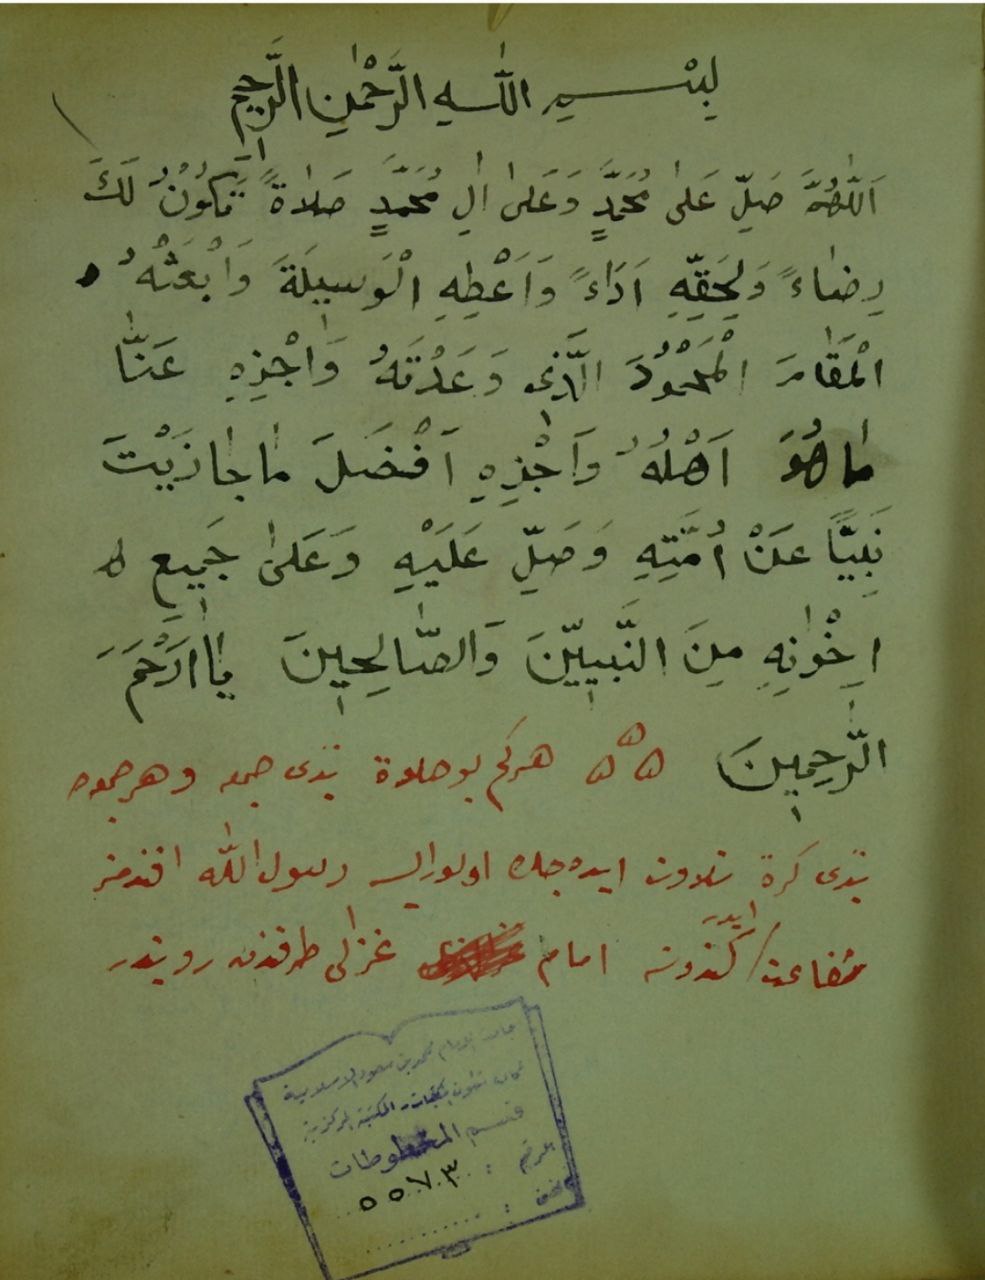 بِسْمِ اللّٰهِ الرَّحْمٰنِ الرَّحِيمِ
اَللّٰهُمَّ صَلِّ عَلٰى مُحَمَّدٍ وَعَلٰى اٰلِ مُحَمَّدٍ صَلَاةً تَكُوْنُ لَكَ
رِضَاءً وَلِحَقِّهِ اَدَاءً وَاَعْطِهِ الْوَسِيلَةَ وَابْعَثْهُ
الْمَقَامَ الْمَحْمُوْدَ الَّذِى وَعَدْتَهُ وَاجْزِهِ عَنَّا
مَا هُوَ اَهْلُهُ وَاَجْزِهِ اَفْضَلَ مَا جَازَيْتَ
نَبِيًّا عَنْ اُمَّتِهِ وَصَلِّ عَلَيْهِ وَعَلٰى جَمِيعِ
اِخْوَانِهِ مِنَ النَّبِيِّينَ وَالصَّالِحِينَ يَا اَرْحَمَ
الرَّحِمِينَ ۵ ۵ ۵ هركم بو صلاة يدى جمعه و هر جمعه
يدى كرة تلاوت ايده جك اولورايسه رسول الله افندمز
شفاعت ايدر كندونه امام غزالى طرفندن رويتدر
جامعة الإمام محمد بن سعود الإسلامية
عمادة شئون المكتبات - المكتبة المركزية
قسم المخطوطات
الرقم : ٥٥٧٣